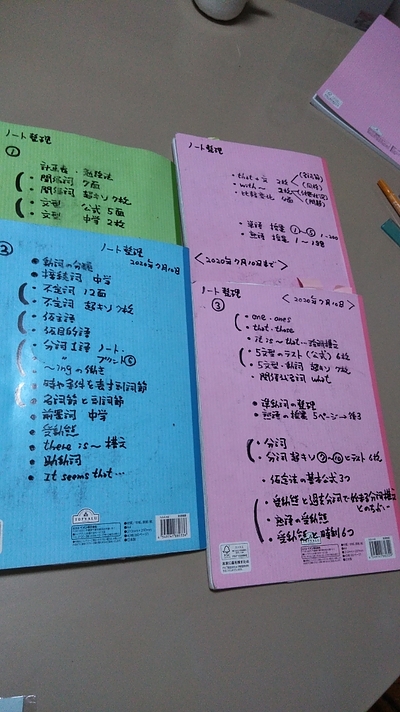 ノート整理
①
計画表・勉強法
・関係詞 7面
・関係詞 超キソ 7枚
・文型 公式 5面
・文型 中学 2枚
ノート整理
・that + 文 2枚
・with〜 2枚
・比較変化 4面
・単語 授業 ①〜⑤ 1-200
・熟語 授業 1〜
<2020年7月10日まで>
②
ノート整理
2020年7月10日
・動詞の分類
・接続詞 中学
・不定詞 12面
・不定詞 超キソ 7枚
・仮主語
・仮目的語
・分詞 1語 ノート・
〃 プリント⑤
・〜ingの働き
・時や条件を表す副詞節
・名詞節と副詞節
・前置詞 中学
・受動態
・there is〜構文
・助動詞
・It seems that…
TOPVALU
ノート整理
③
<2020年7月10日>
・one・ones
・that・those
・it is〜that…強調構文
・5文型のテスト(公式) 6枚
・5文型・動詞 超キソ 7枚
・関係代名詞 what
・準動詞の整理
・熟語の授業 5ページ→後3
・分詞
・分詞 超キソ⑦〜⑩とテスト 6枚
・仮定法の基本公式3つ
・受動態と過去分詞で始まる分詞構文
とのちがい
・熟語の受動態
・受動態と時制6つ
FSC